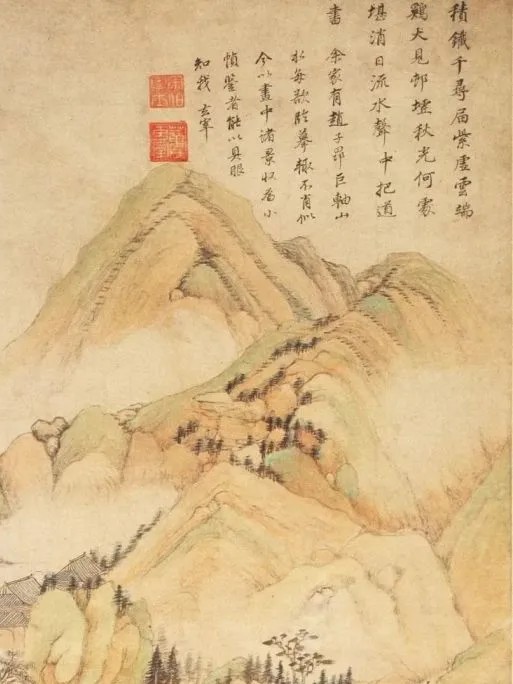 積鐵千尋屆紫虛雲端
鷄犬見邨墟秋光何處
堪消日流水聲中把道
書 余家有趙子昂巨軸山
水每欲臨摹輒不肖似
今以畫中諸景收為小
幀鑒者能以具眼
知我 玄宰